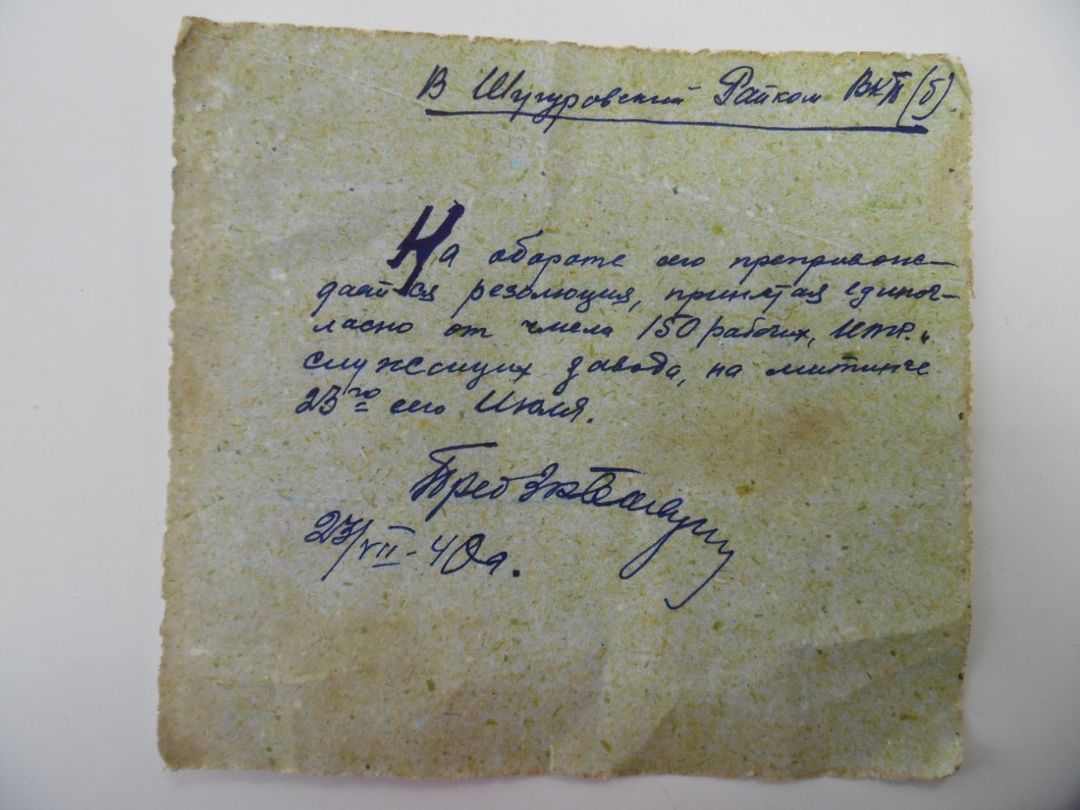 В Шугуровский Райком ВКП(б).
На обороте сего препровож-
дается резолюция, принятая единог-
ласно от числа 150 рабочих, ИТР.,
служащих завода, на митинге
23го сего Июля.
Пред
23/VII-40г.